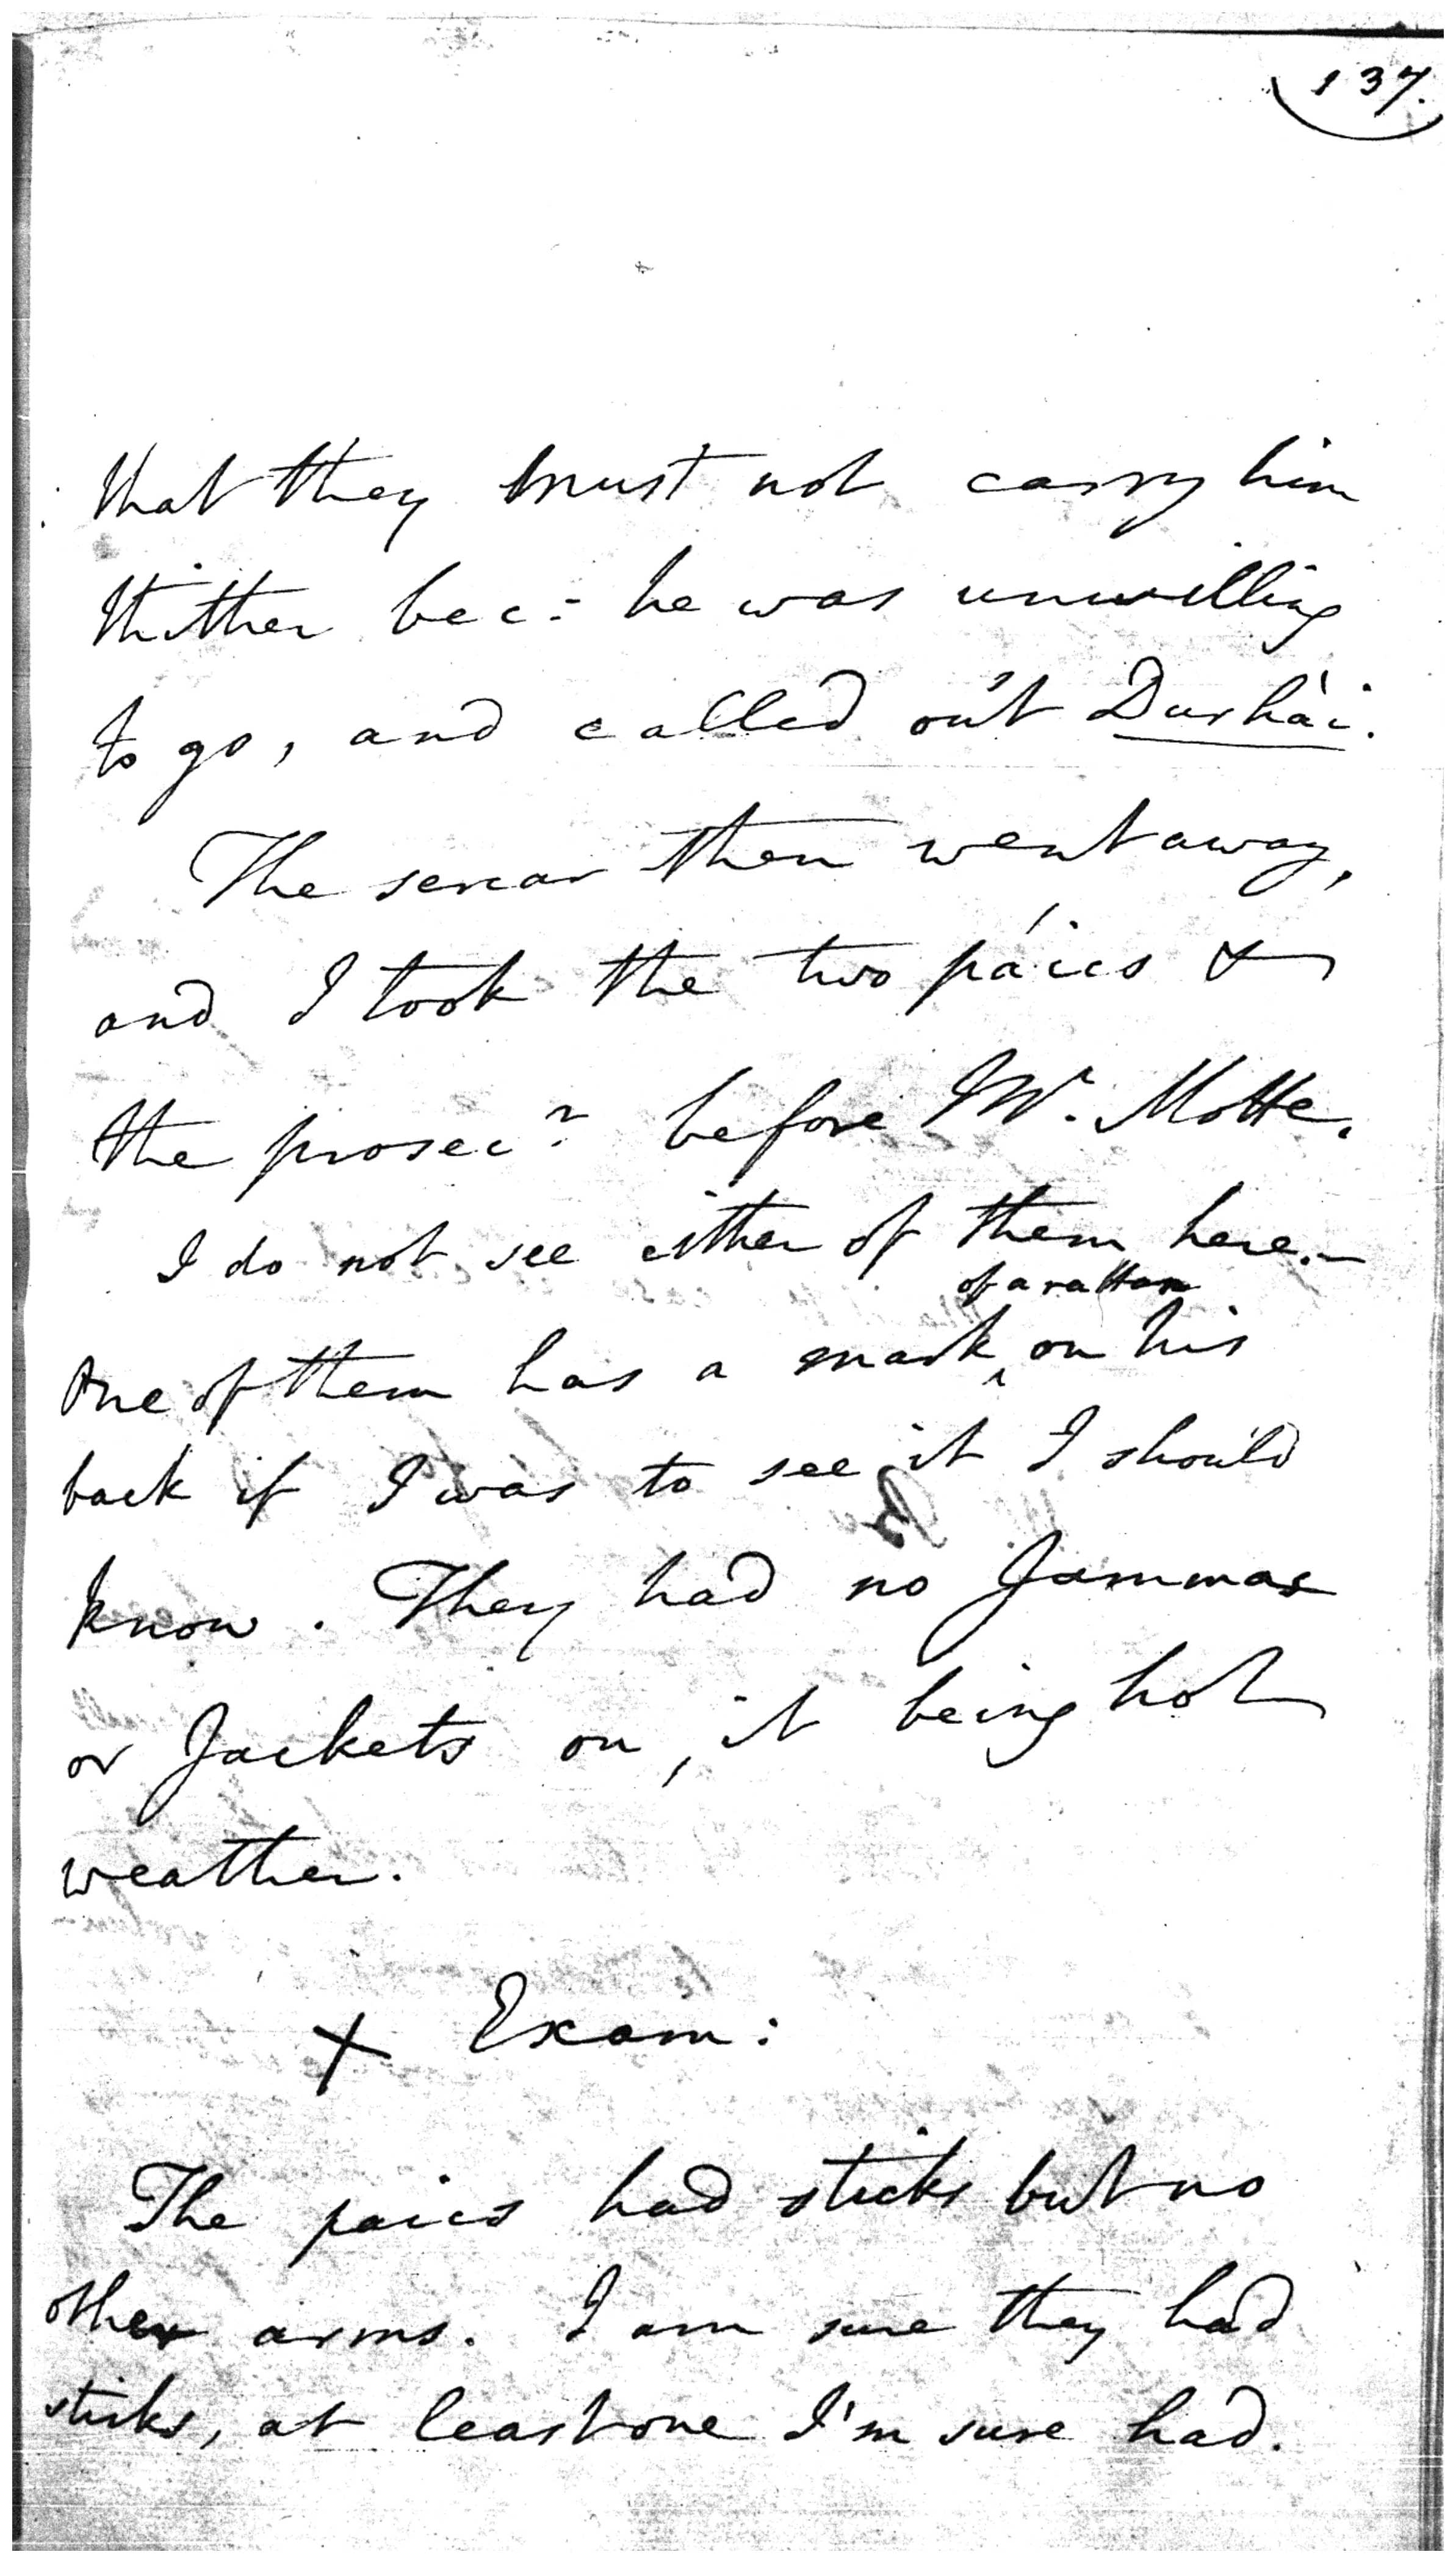 137.
that they must not carry him
thither bec: he was unwilling
to go, and called out Durhái.
The sercar then went away,
and I took the two páics &
the prosec.r before Mr. Motte.
I do not see either of them here.—
of a rattan
One of them has a mark ‸ on his
back if I was to see it I should
know. They had no Jammas
or Jackets on, it being hot
weather.
X Exam:
The paics had sticks but no
other arms. I am sure they had
sticks, at least one I'm sure had.